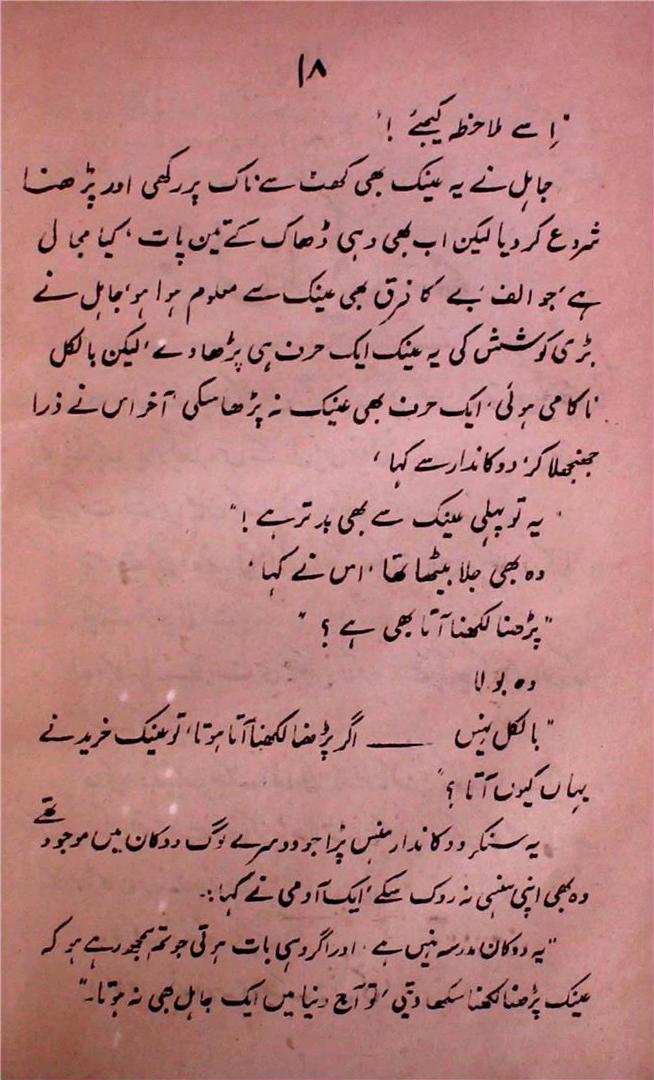 ۱۸
"اِسے ملاحظہ کیجئے !"
جاہل نے یہ عینک بھی کھٹ سے ناک پر رکھی اور پڑھنا
شروع کر دیا لیکن اب بھی وہی ڈھاک کے تین پات ، کیا مجال
ہے ، جو الف بے کا فرق بھی عینک سے معلوم ہوا ہو ، جاہل نے
بڑی کوشش کی یہ عینک ایک حرف ہی پڑھا دے ، لیکن بالکل
ناکامی ہوئی ، ایک حرف بھی عینک نہ پڑھا سکی ، آخر اس نے ذرا
جھنجھلا کر ، دوکاندار سے کہا ،
"یہ تو پہلی عینک سے بھی بدتر ہے !"
وہ بھی جلا بیٹھا تھا ، اس نے کہا ،
"پڑھنا لکھنا آتا بھی ہے ؟"
وہ بولا
"بالکل نہیں ــــ اگر پڑھنا لکھنا آتا ہوتا ، تو عینک خریدنے
یہاں کیوں آتا ؟"
یہ سنکر دوکاندار ہنس پڑا جو دوسرے لوگ دوکان میں موجود تھے
وہ بھی اپنی ہنسی نہ روک سکے ، ایک آدمی نے کہا :۔
"یہ دوکان مدرسہ نہیں ہے ، اور اگر وہی بات ہوتی جو تم سمجھ رہے ہو کہ
عینک پڑھنا لکھنا سکھا دیتی ، تو آج دنیا میں ایک جاہل بھی نہ ہوتا ۔"